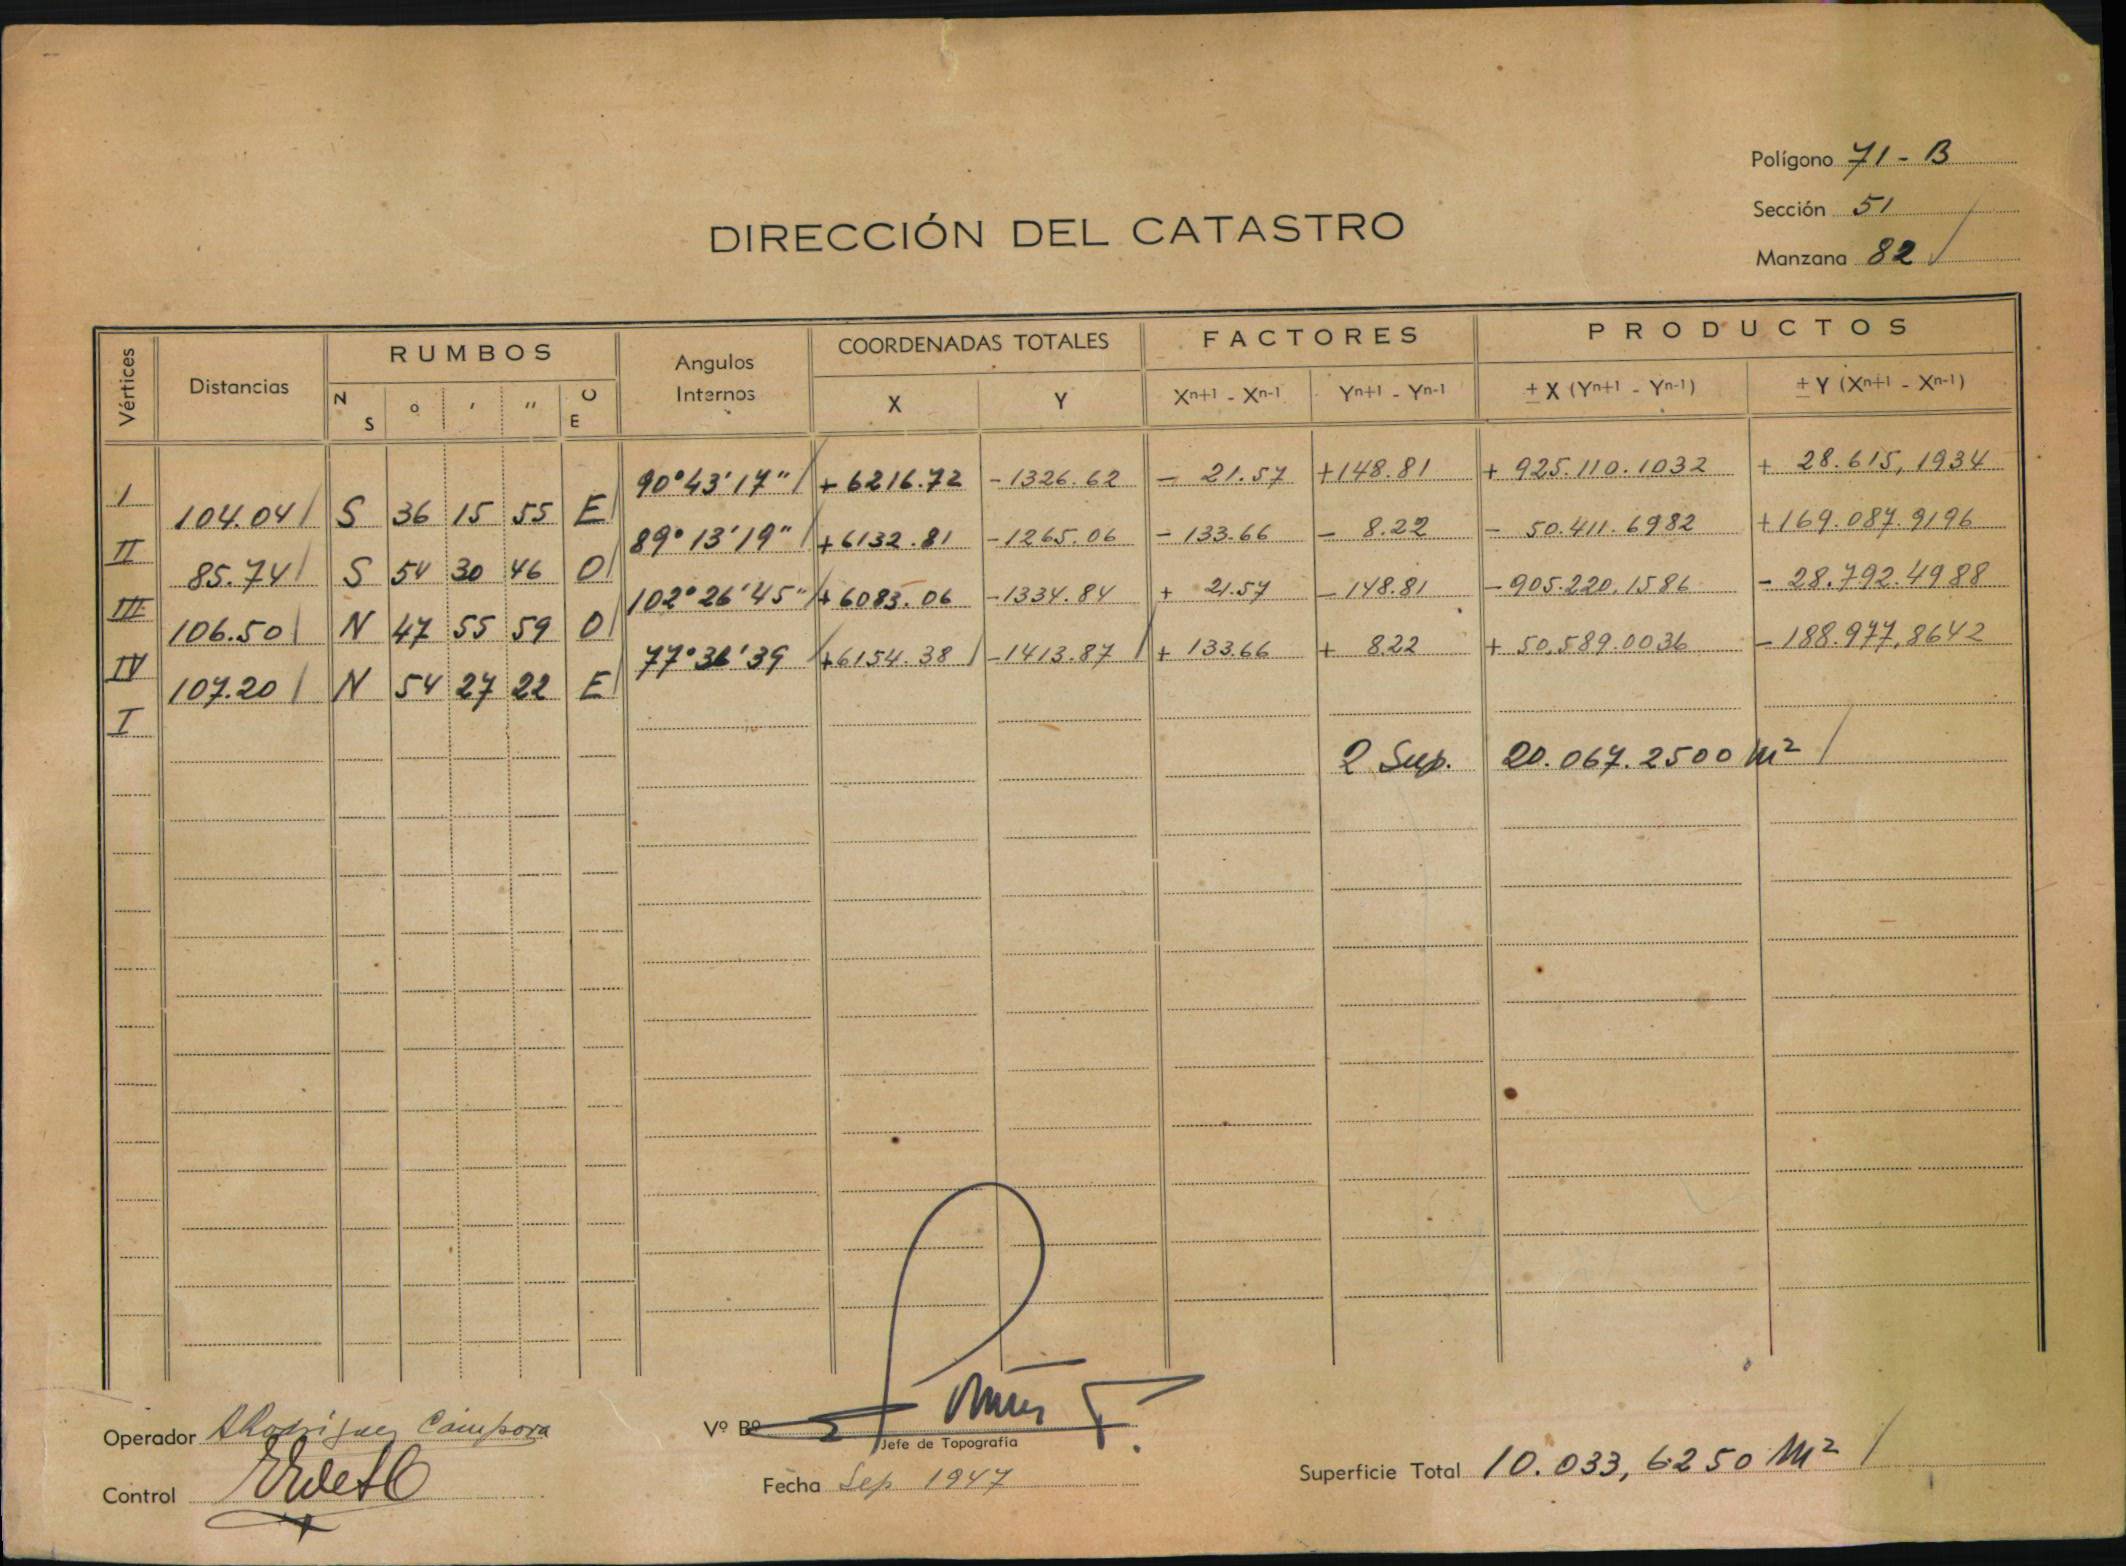 Polígono 71 - B
Sección 51
Manzana 82
DIRECCIÓN DEL CATASTRO
Vértices Distancias RUMBOS Angulos Internos COORDENADAS TOTALES FACTORES PRODUCTOS
N S o ' " O E X Y Xn+1 - Xn-1 Yn+1 - Yn-1 ± X (Yn+1 - Yn-1) ± Y (Xn+1 - Xn-1)
I 90°43'17" + 6216.72 - 1326.62 - 21.57 + 148.81 + 925.110.1032 + 28.615,1934
104.04 S 36 15 55 E
II 89°13'19" + 6132.81 - 1265.06 - 133.66 - 8.22 - 50.411.6982 + 169.087.9196
85.74 S 54 30 46 O
III 102°26'45" + 6083.06 - 1334.84 + 21.57 - 148.81 - 905.220.1586 - 28.792.4988
106.50 N 47 55 59 O
IV 77°36'39 + 6154.38 - 1413.87 + 133.66 + 8.22 + 50.589.0036 - 188.977,8642
107.20 N 54 27 22 E
I
2 Sup. 20.067.2500 m²
Operador Rodriguez Campora
Vº Bº
Jefe de Topografía
Control
Fecha Sep 1947
Superficie Total 10.033,6250 M²